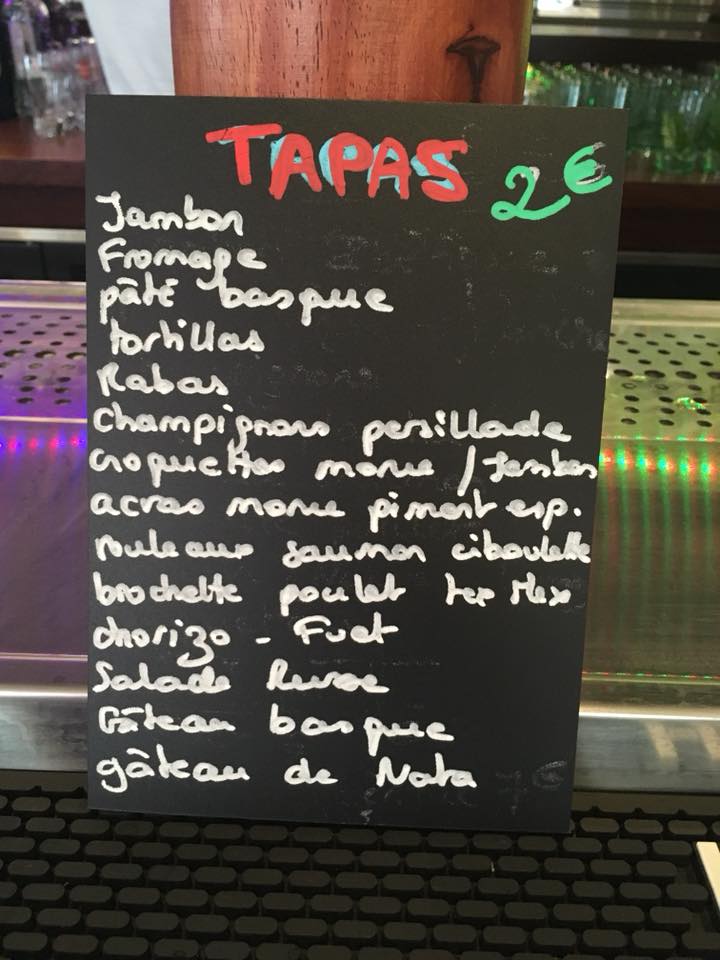 TAPAS 2€
Jambon
Fromage
pâté basque
tortillas
Rabas
champignons persillade
croquettes morue / Jambon
acras morue piment esp.
rouleaux saumon ciboulette
brochette poulet tex Mex
chorizo - Fuet
Salade Russe
Gâteau basque
gâteau de Nata